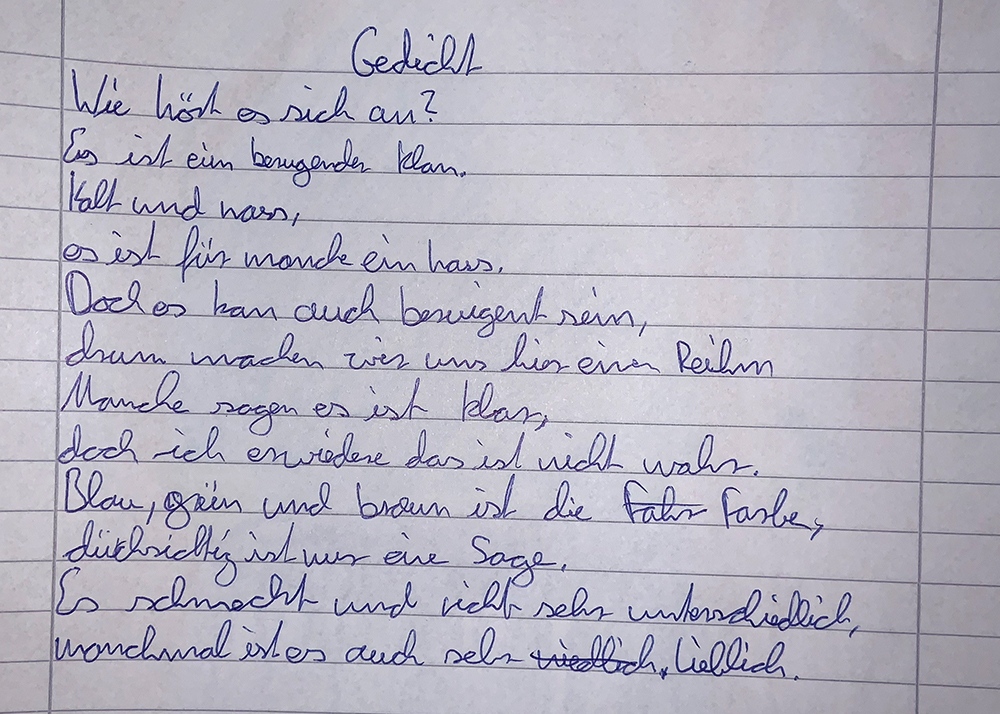 Gedicht
Wie hört es sich an?
Es ist ein beruigender klan.
Kalt und nass,
es ist für manche ein haus.
Doch es kan auch beruigent sein,
drum machen wir uns hier einen Reihm
Manche sagen es ist klar,
doch ich erwiedere das ist nicht wahr.
Blau, grün und braun ist die Fahr Farbe,
dürchsichtig ist nur eine Sage.
Es schmeckt und richt sehr unterschiedlich,
manchmal ist es auch sehr lieblich.